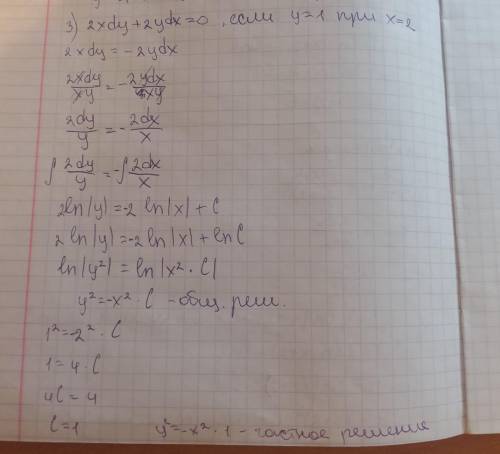 3) 2xdy+2ydx=0, если y=1 при x=2
2xdy=-2ydx
2xdy/xy=-2ydx/xy
2dy/y=-2dx/x
∫2dy/y=-∫2dx/x
2ln|y|=-2ln|x|+C
2ln|y|=-2ln|x|+lnC
ln|y²|=ln|x²·C|
y²=-x²·C - общ. реш.
1²=-2²·C
1=4·C
4C=4
C=1 y²=-x²·1 - частное решение